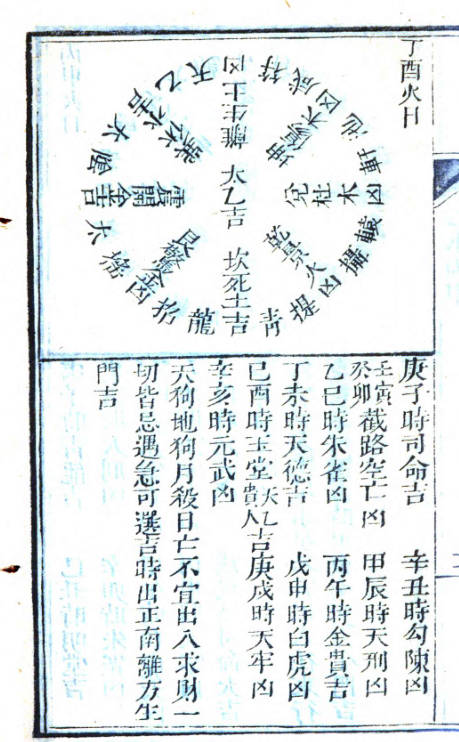 丁酉火日
天乙
符
咸池凶
軒轅凶
攝提凶
青龍
招搖凶
太陰吉
離生土凶
坤傷木
兌杜木
乾景火
坎死土吉
艮驚金
震開金
太乙吉
庚子時司命吉 辛丑時勾陳凶
壬寅癸卯截路空亡凶 甲辰時天刑凶
乙巳時朱雀凶 丙午時金貴吉
丁未時天德吉 戊申時白虎凶
己酉時玉堂天乙貴人吉庚戌時天牢凶
辛亥時元武凶
天狗地狗月殺日亡不宜出入求財一
切皆忌遇急可選吉時出正南離方生
門吉